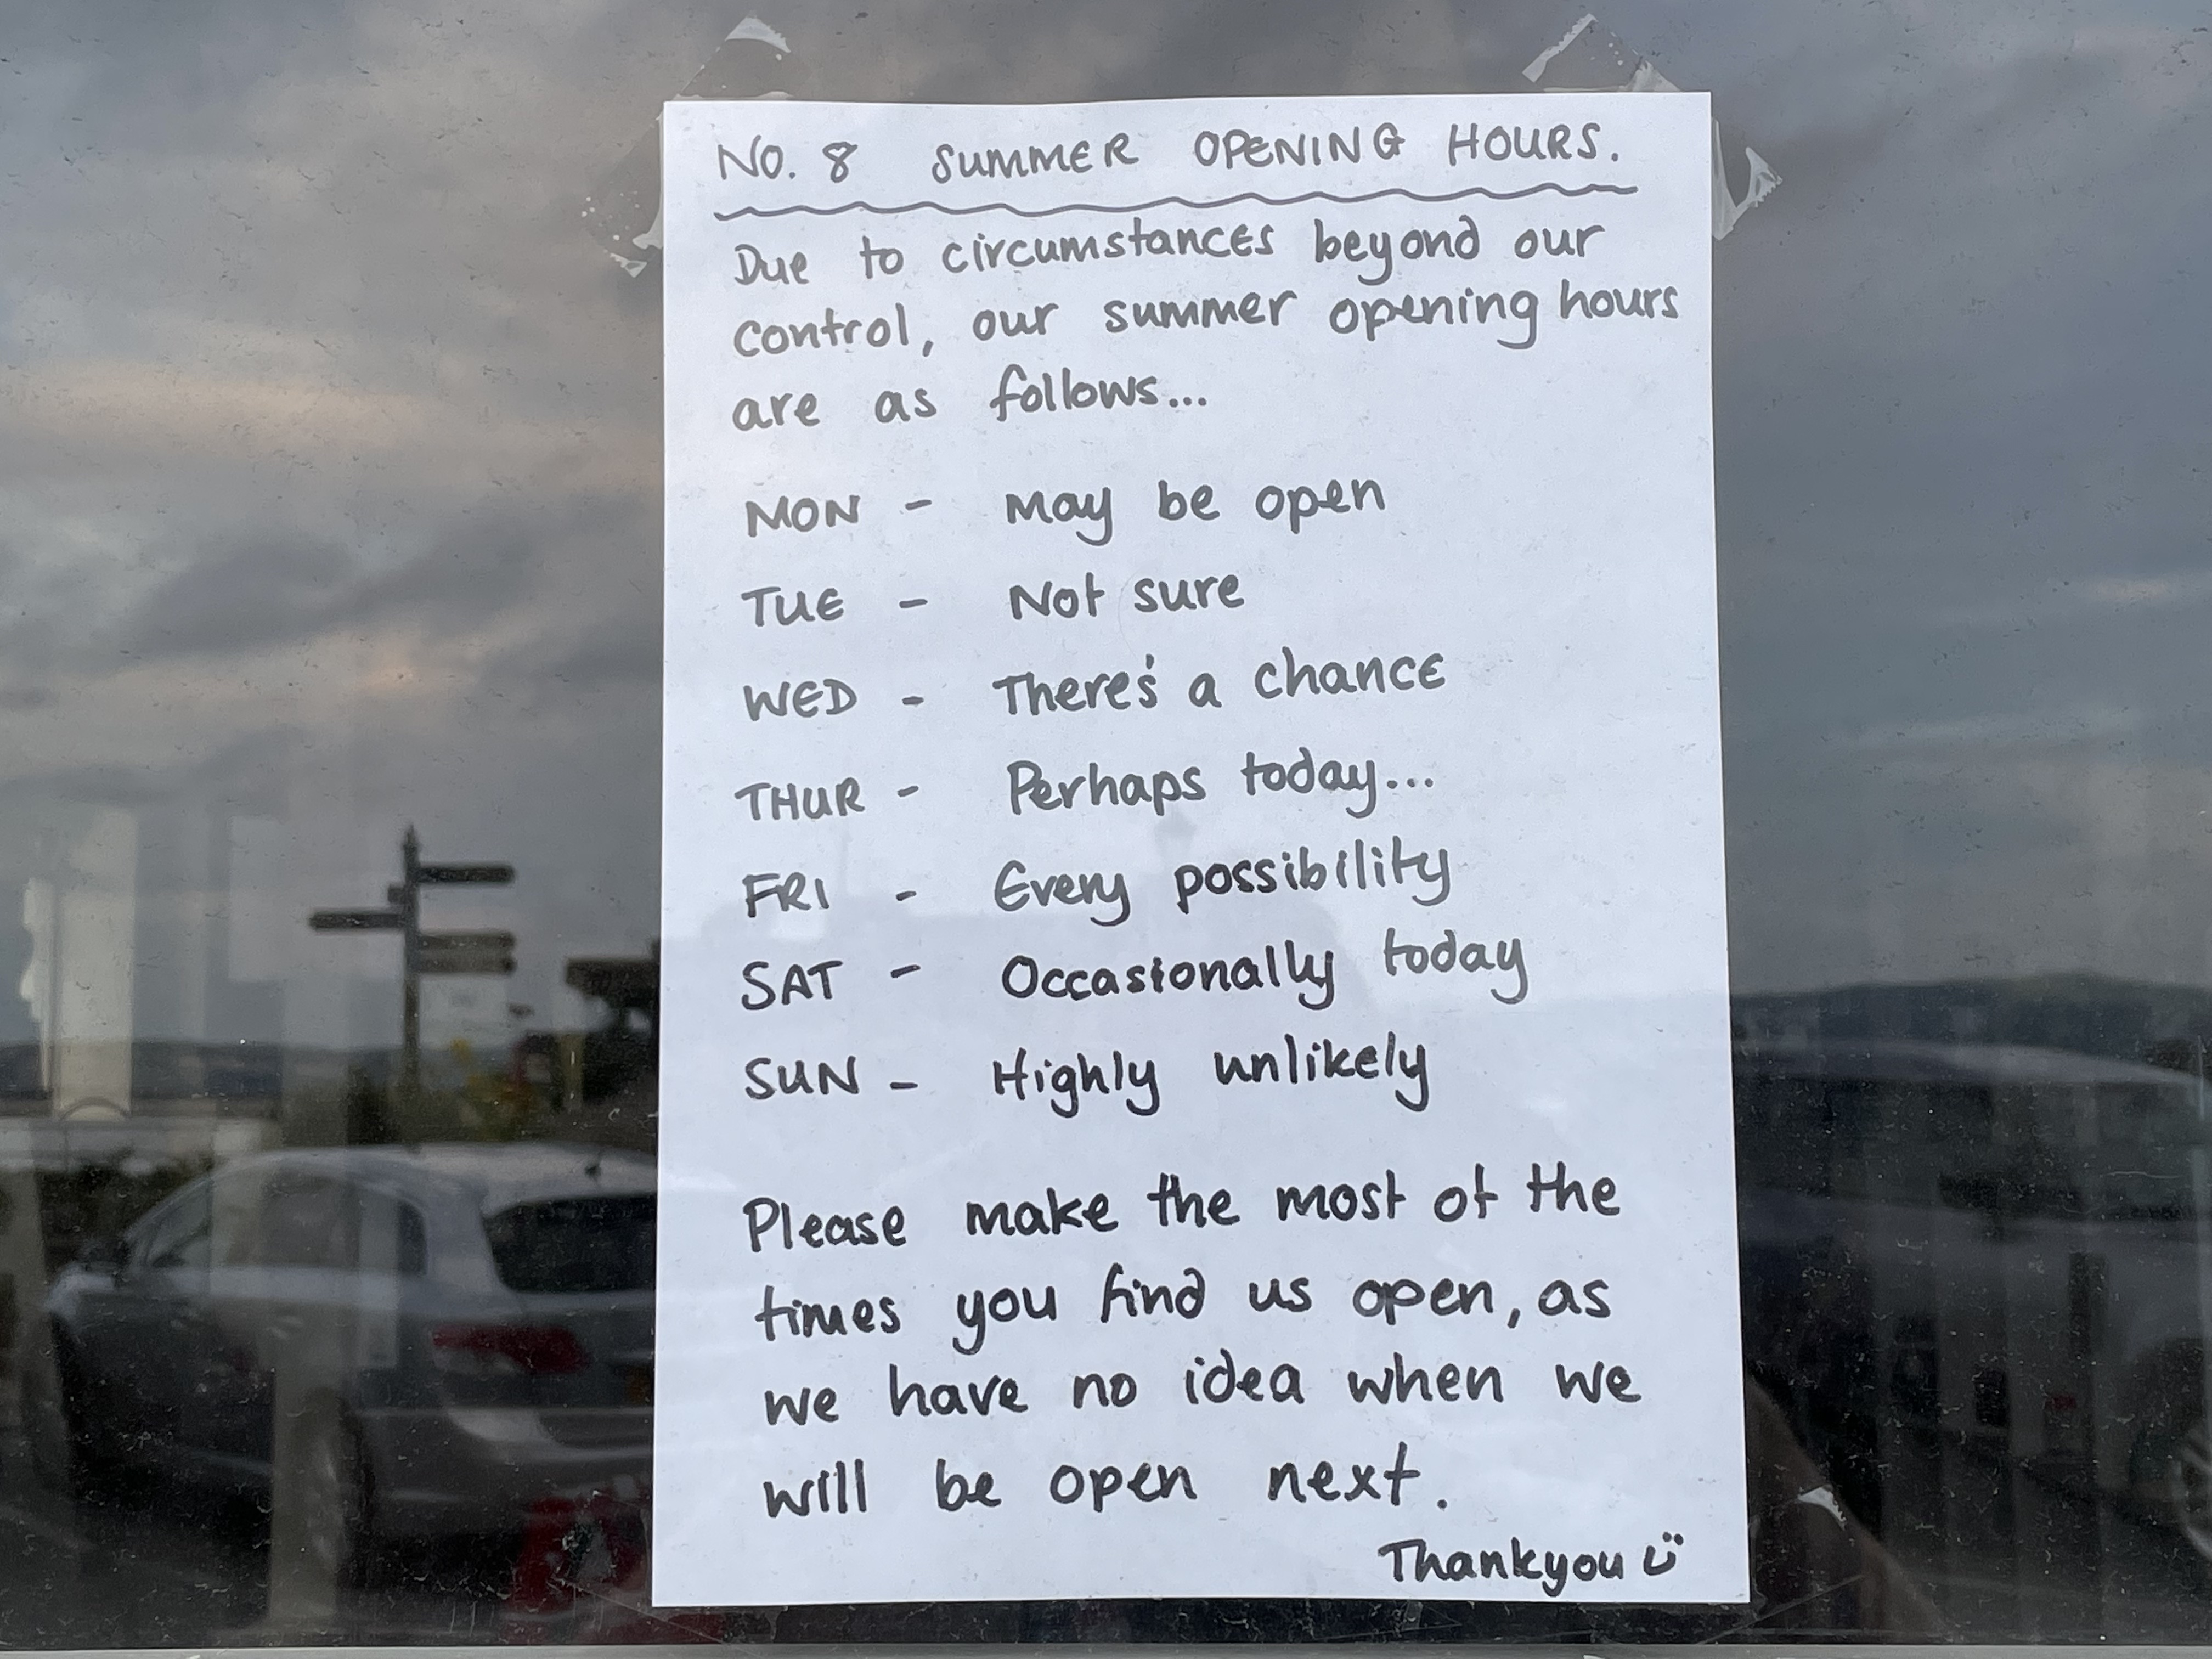 NO. 8 SUMMER OPENING HOURS.
Due to circumstances beyond our
control, our summer opening hours
are as follows...
MON - May be open
TUE - Not sure
WED - There's a chance
THUR - Perhaps today...
FRI - Every possibility
SAT - Occasionally today
SUN - Highly unlikely
Please make the most of the
times you find us open, as
we have no idea when we
will be open next.
Thankyou Ü